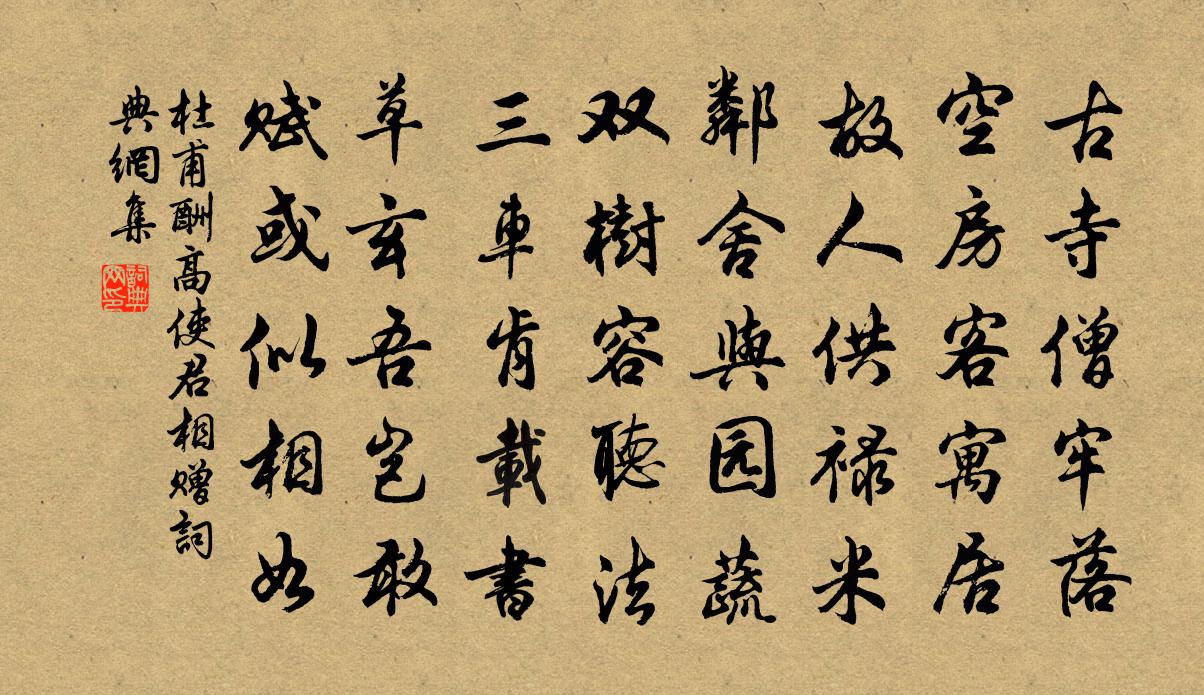 古寺僧牢落
空房客寓居
故人供禄米
鄰舍與园蔬
双樹容聽法
三車肯載書
草玄吾豈敢
賦或似相如
杜甫酬高使君相贈詞
典網集
詞典网印